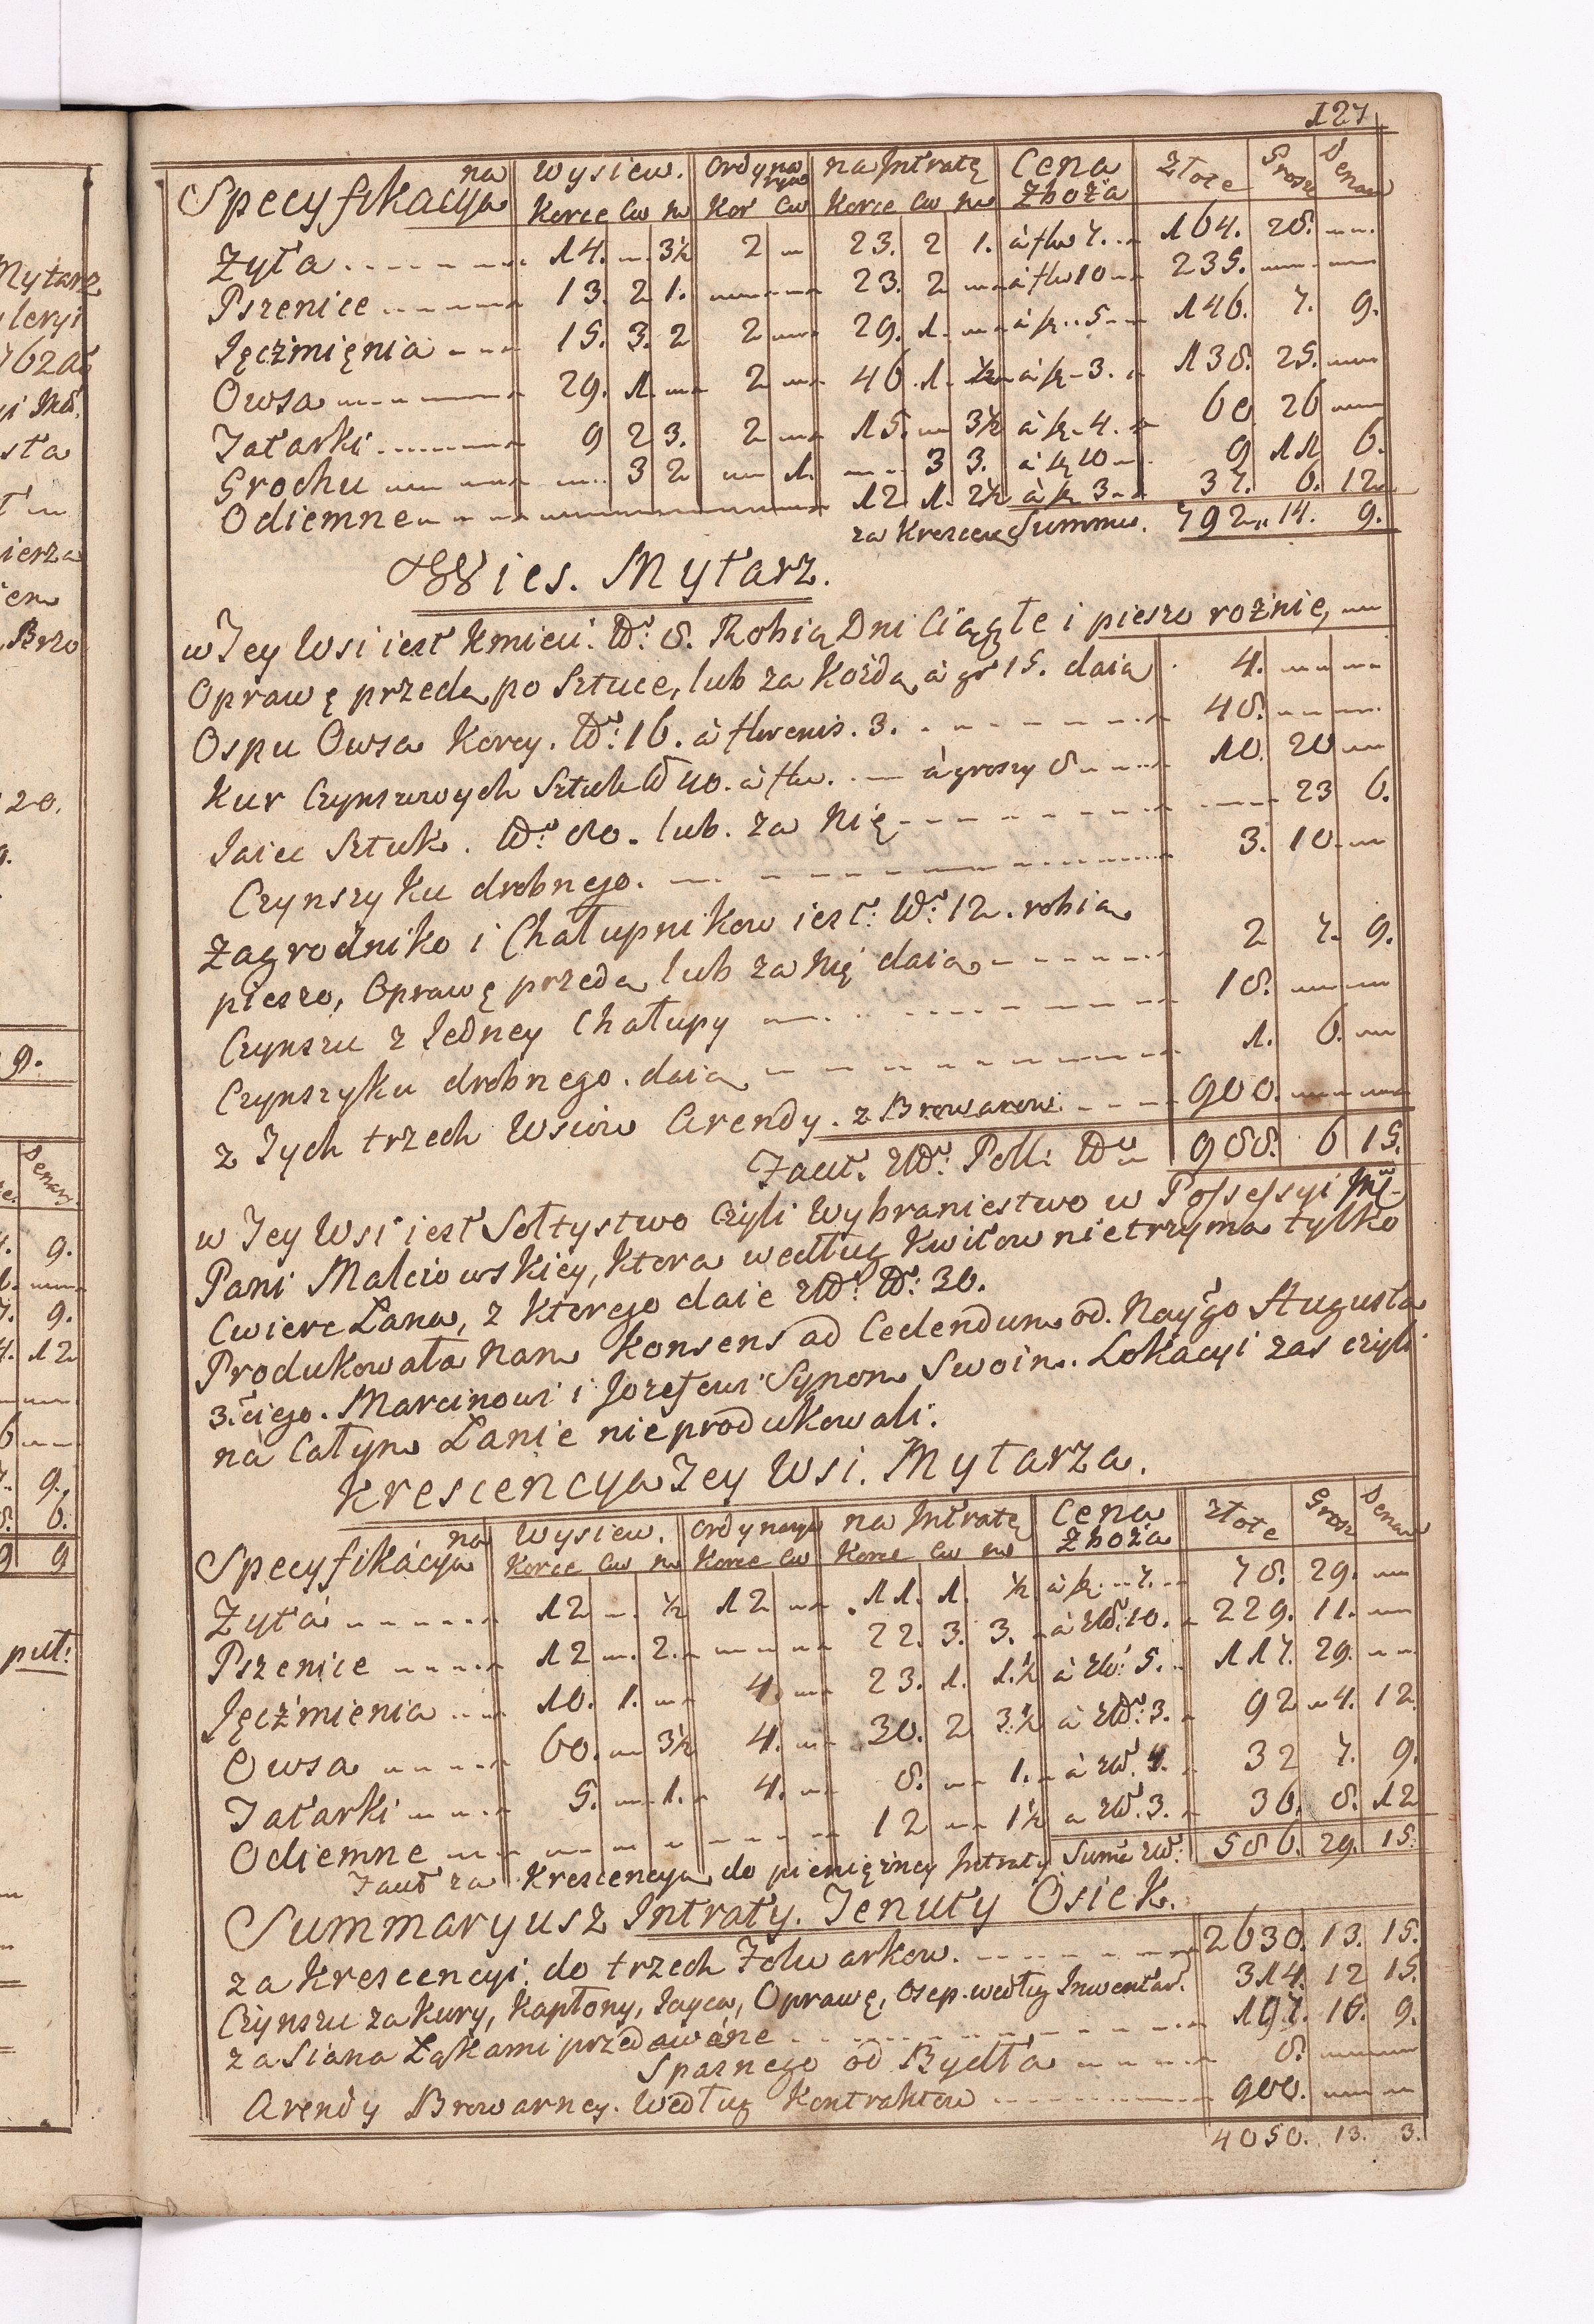 127
Specyfikacya na Wysiew. Ordynarya na Intratę Cena Zboża Złote Grosze Denary
Korce Cw M Kor Cw Korce Cw M
Zyta 14. 3½ 2 23. 2 1. à 7. 164. 28.
Pszenice 13. 2 1. 23. 2 à 10 235.
Jęczmięnia 15. 3. 2 2 29. 1. à 5 146. 7. 9.
Owsa 29. 1. 2 46. 1. ½ à 3. 138. 25.
Tatarki 9 2 3. 2 15. 3½ à 4. 60 26
Grochu 3 2 1. 3 3. à 10 9 11 6.
Odiemne 12 1. 2½ à 3. 37. 6. 12
za Krescen Summa. 792. 14. 9.
Wies. Mytarz.
w Tey Wsi iest Kmieci. Nr: 8. Robią Dni Ciągłe i pieszo roznie,
Oprawę przedą po Sztuce, lub za Kożdą à gr 15. daią 4.
Ospu Owsa Korcy. Nr: 16. à 3. 48.
Kur Czynszowych Sztuk Nr 40. à groszy 8 10. 20
Jaiec Sztuk. Nr 80. lub. za Nię 23 6.
Czynszyku drobnego. 3. 10.
Zagrodniko i Chałupnikow iest: Nr: 12. robią
pieszo, Oprawę przedą lub za Nię daią 2 7. 9.
Czynszu z Jedney Chałupy 18.
Czynszyku drobnego. daią 1. 6.
z Tych trzech Wsiow Arendy. z Browarow 900.
Facit. Zł: Poll: Nr 988. 6 15.
w Tey Wsi iest Sołtystwo czyli Wybraniestwo w Possessyi
Pani Malciowskiey, ktora według Kwitow nietrzyma tylko
Cwierc Łana, z ktorego daie Zł: Nr: 30.
Produkowała Nam Konsens ad Cedendum od. Nayygo Augusta
3.ciego. Marcinowi i Jozefowi Synom Swoim. Lokacyi zas czyli
na Całym Łanie nieprodukowali.
Krescencya Tey Wsi. Mytarza.
Specyfikacya na Wysiew. Ordynarya na Intratę Cena Zboża Złote Grosze Denary
Korce Cw M Korce Cw Korce Cw M
Zyta 12 ½ 12 11. 1. ½ à 7. 78. 29.
Pszenice 12 2. 22. 3. 3. à Zł: 10. 229. 11.
Jęczmienia 10. 1. 4. 23. 1. 1.½ à Zł: 5. 117. 29.
Owsa 60. 3½ 4. 30. 2 3.½ à Zł: 3. 92 4. 12.
Tatarki 5. 1. 4. 8. 1. à Zł. 4. 32 7. 9.
Odiemne 12 1½ a Zł. 3. 36. 8. 12
Facit za Krescencyą do pieniężney Intraty Sumа Zł: 586. 29. 15.
Summaryusz Intraty. Tenuty Osiek.
za Krescencyi. do trzech Folwarkow. 2630. 13. 15.
Czynszu za Kury, Kapłony, Jayca, Oprawę, Osep. według Inwentar. 314. 12 15.
za Siana Łąkami przedawane 197. 16. 9.
Spasnego od Bydła 8.
Arendy Browarney. według Kontraktow 900.
4050. 13. 3.